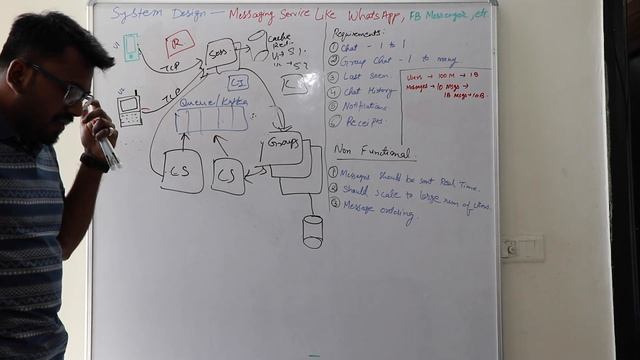 System Design — Messaging Service Like WhatsApp, FB Messenger, etc.
Requirements:
① Chat - 1 to 1
② Group Chat - 1 to many
③ Last Seen
④ Chat History
⑤ Notifications
⑥ Receipts
Users → 100M → 1B
Messages → 10 Msgs →
Non Functional
① Messages should be sent Real Time.
② Should scale to large num of
③ Message ordering.
U1
R
TCP
TCP
Sess
Cache
U1 → S1
Queue/Kafka
CS
CS
Groups